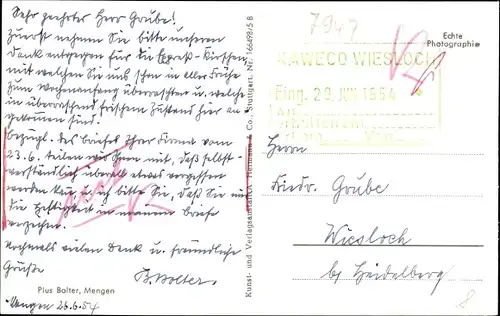 Sehr geehrter Herr Grube!
Zuerst nehmen Sie bitte unseren
Dank entgegen für die Expreß-Kirschen
mit welchen Sie uns schon in aller Frühe
zum Wochenanfang überraschten u. welche
in überraschend frischem Zustand hier an-
gekommen sind.
Bezügl. des Briefes Ihrer Firma vom
23.6. teilen wir Ihnen mit, daß selbst-
verständlich überall etwas vergessen
werden kann u. ich bitte Sie, daß Sie mir
die Heftigkeit in meinem Briefe
verzeihen.
Nochmals vielen Dank u. freundliche
Grüße
B. Bolter
Pius Bolter, Mengen
Mengen 28.6.54
Kunst- und Verlagsanstalt A. Hermann & Co., Stuttgart. Nr. 16649/5 B
7947
Echte
Photographie
KAWECO WIESLOCH
Eing. 29. JUN 1954
Herrn
Friedr. Grube
Wiesloch
by Heidelberg
8